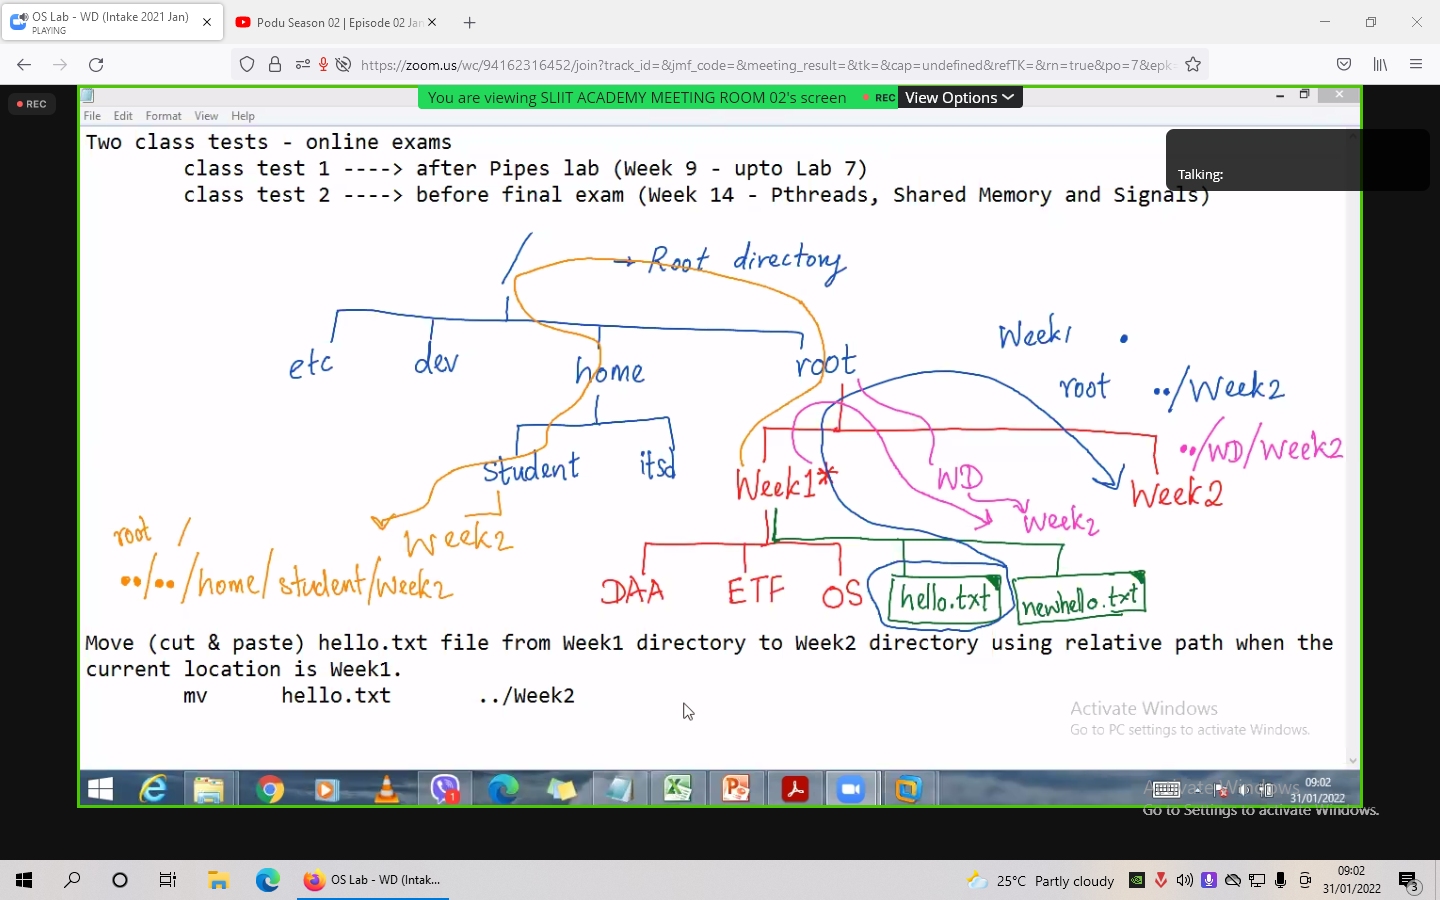 OS Lab - WD (Intake 2021 Jan)
PLAYING
Podu Season 02 | Episode 02 Jan
https://zoom.us/wc/94162316452/join?track_id=&jmf_code=&meeting_result=&tk=&cap=undefined&refTK=&rn=true&po=7&epk=
REC
You are viewing SLIIT ACADEMY MEETING ROOM 02's screen
REC
View Options
File Edit Format View Help
Talking:
Two class tests - online exams
class test 1 ----> after Pipes lab (Week 9 - upto Lab 7)
class test 2 ----> before final exam (Week 14 - Pthreads, Shared Memory and Signals)
/ → Root directory
etc dev home root
Week1 .
root ../Week2
../WD/Week2
student itsd
Week1* WD Week2
Week2
Week2
root /
../../home/student/Week2
DAA ETF OS hello.txt newhello.txt
Move (cut & paste) hello.txt file from Week1 directory to Week2 directory using relative path when the
current location is Week1.
mv hello.txt ../Week2
Activate Windows
Go to PC settings to activate Windows.
1
09:02
31/01/2022
Activate Windows
Go to Settings to activate Windows.
OS Lab - WD (Intak...
25°C Partly cloudy
09:02
31/01/2022
3